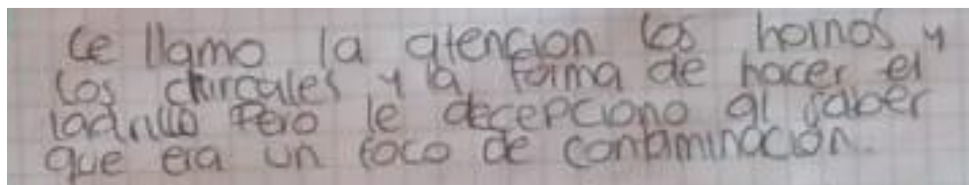 Le llamo la atencion los hornos y
los chircales y la forma de hacer el
ladrillo Pero le decepciono al saber
que era un foco de contaminación.